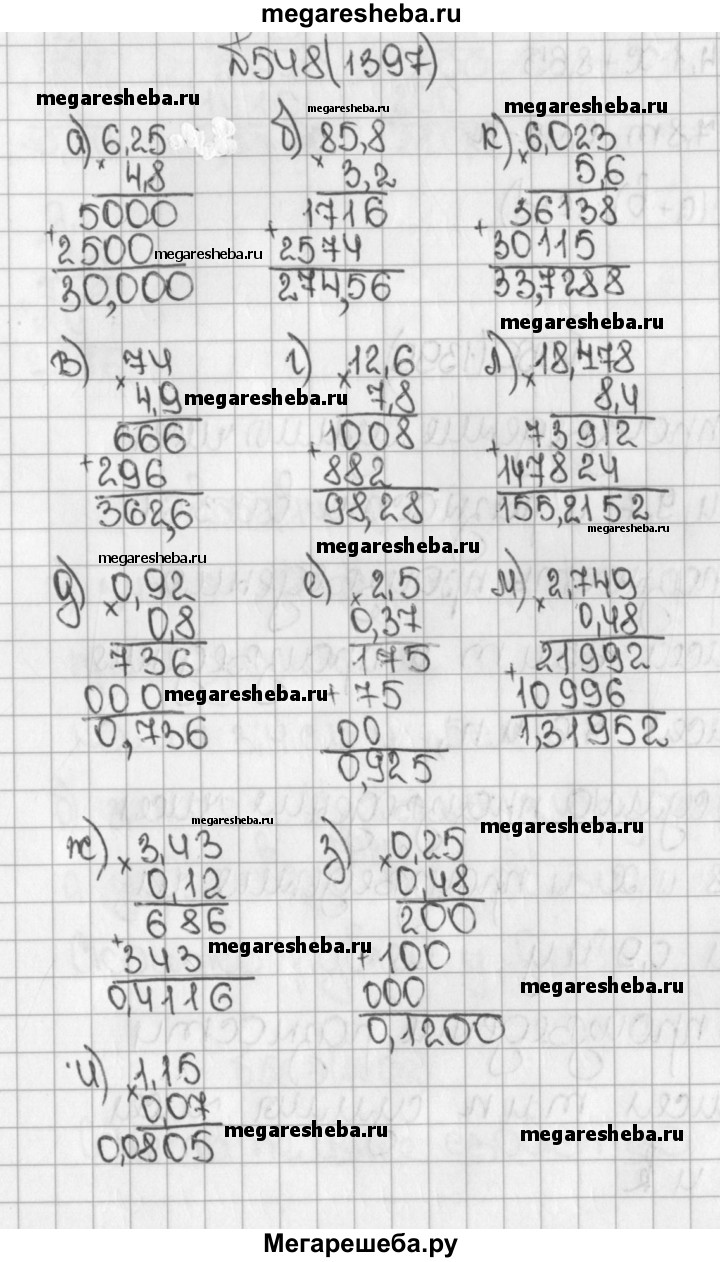 megaresheba.ru
№548(1397)
megaresheba.ru megaresheba.ru megaresheba.ru
а) 6,25 б) 85,8 к) 6,023
× 4,8 × 3,2 × 5,6
5000 1716 36138
+ 2500 megaresheba.ru + 2574 + 30115
30,000 274,56 33,7288
megaresheba.ru
в) 74 г) 12,6 л) 18,478
× 4,9 megaresheba.ru × 7,8 × 8,4
666 1008 73912
+ 296 + 882 + 147824
362,6 98,28 155,2152
megaresheba.ru
megaresheba.ru megaresheba.ru
д) 0,92 е) 2,5 м) 2,749
× 0,8 × 0,37 × 0,48
736 175 21992
000 megaresheba.ru + 75 + 10996
0,736 00 1,31952
0,925
megaresheba.ru megaresheba.ru
ж) 3,43 з) 0,25
× 0,12 × 0,48
686 200
+ 343 megaresheba.ru + 100
0,4116 000 megaresheba.ru
0,1200
и) 1,15
× 0,07
0,0805 megaresheba.ru megaresheba.ru
Мегарешеба.ру